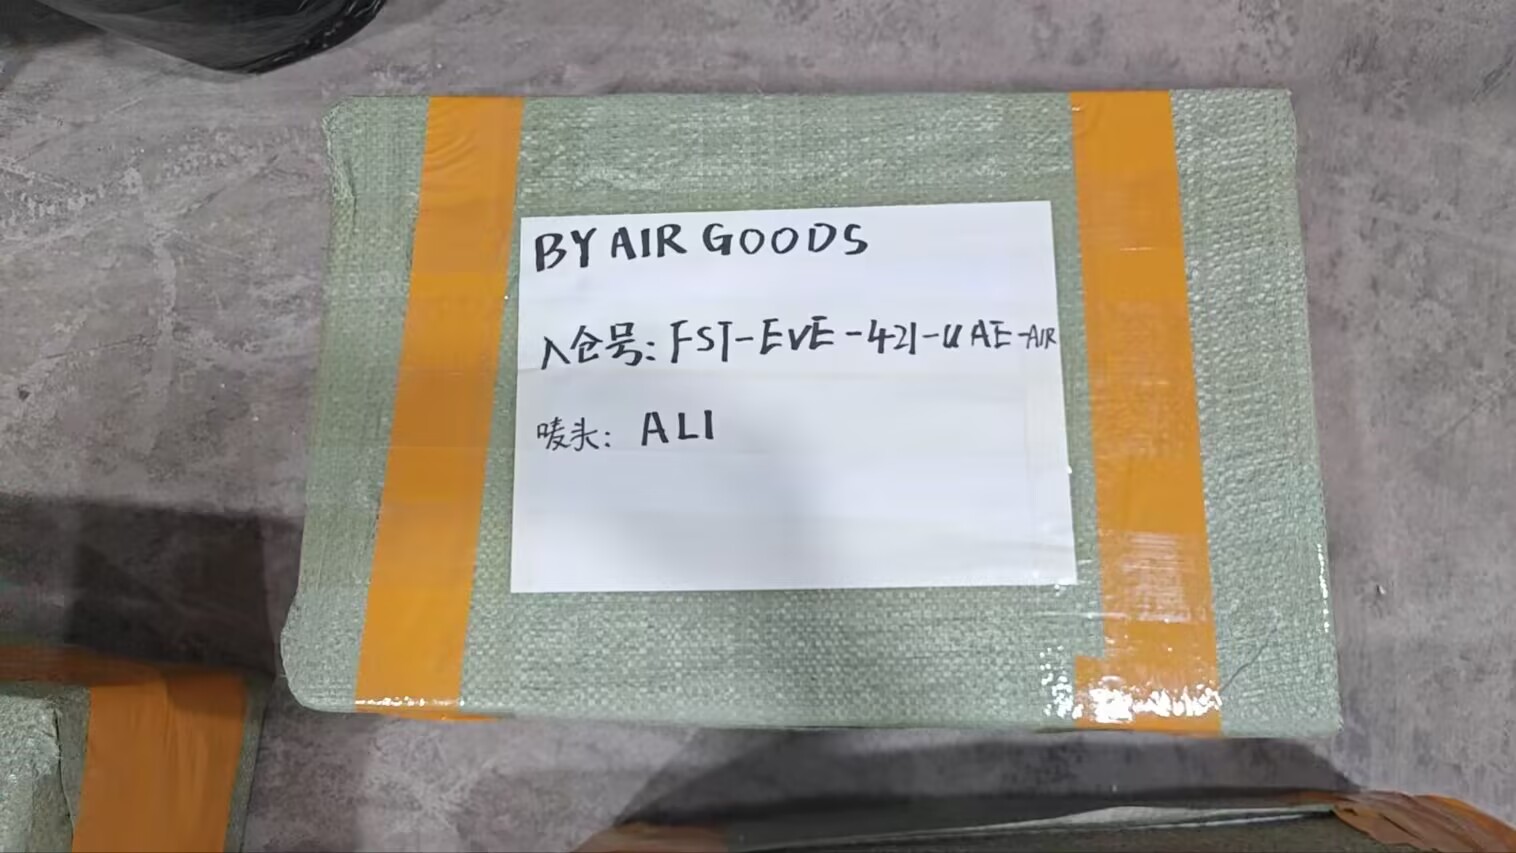 BY AIR GOODS
入仓号: FST-EVE-421-UAE-AIR
唛头: ALI